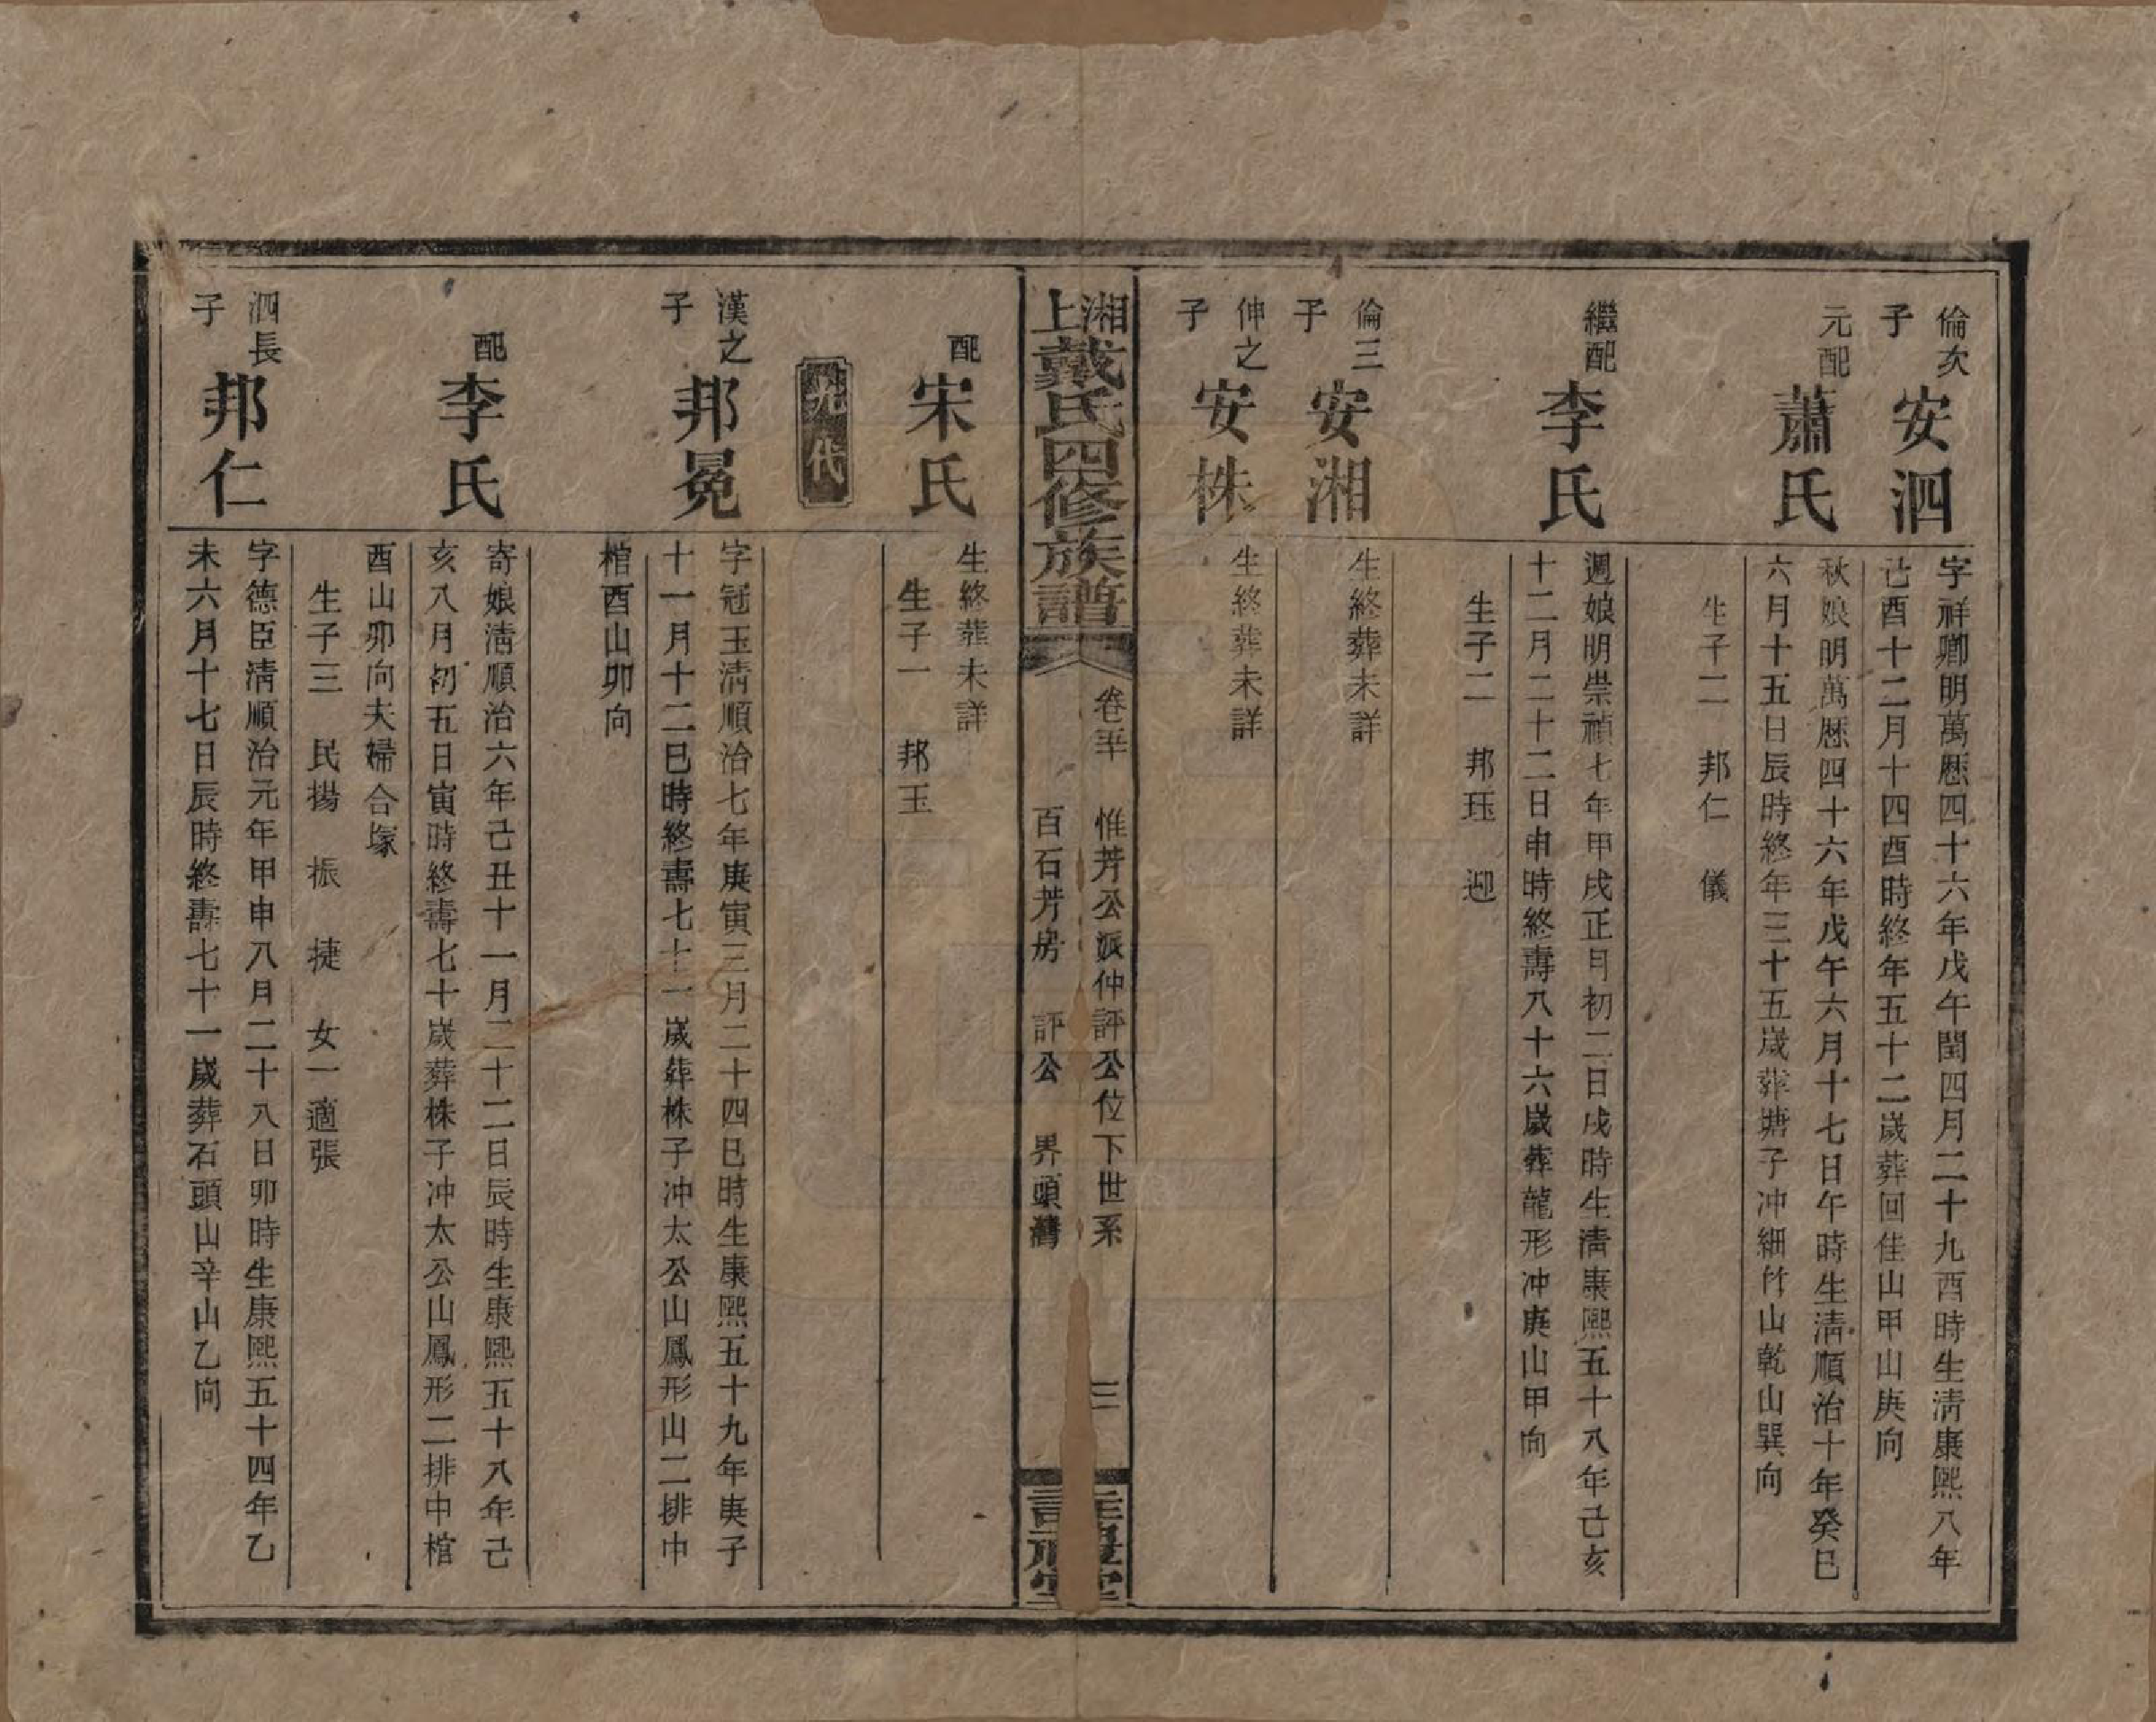 倫次子 安泗
字祥卿明萬厯四十六年戊午閏四月二十九酉時生淸康熙八年
己酉十二月十四酉時終年五十二歲葬回佳山甲山庚向
元配 蕭氏
秋娘明萬厯四十六年戊午六月十七日午時生淸順治十年癸巳
六月十五日辰時終年三十五歲葬塘子冲細竹山乾山巽向
生子二 邦仁 儀
繼配 李氏
週娘明崇禎七年甲戌正月初二日戌時生淸康熙五十八年己亥
十二月二十二日申時終壽八十六歲葬龍形冲庚山甲向
生子二 邦珏 迎
倫三子 安湘
生終葬未詳
伸之子 安株
生終葬未詳
湘上戴氏四修族譜
卷 惟芳公派仲評公位下世系
百石芳房 評公 界頭灣
三
配 宋氏
生終葬未詳
生子一 邦玉
代
漢之子 邦冕
字冠玉淸順治七年庚寅三月二十四巳時生康熙五十九年庚子
十一月十二巳時終壽七十一歲葬株子冲太公山鳳形山二排中
棺酉山卯向
配 李氏
寄娘淸順治六年己丑十一月二十二日辰時生康熙五十八年己
亥八月初五日寅時終壽七十歲葬株子冲太公山鳳形二排中棺
酉山卯向夫婦合塚
生子三 民揚 振 捷 女一適張
泗長子 邦仁
字德臣淸順治元年甲申八月二十八日卯時生康熙五十四年乙
未六月十七日辰時終壽七十一歲葬石頭山辛山乙向